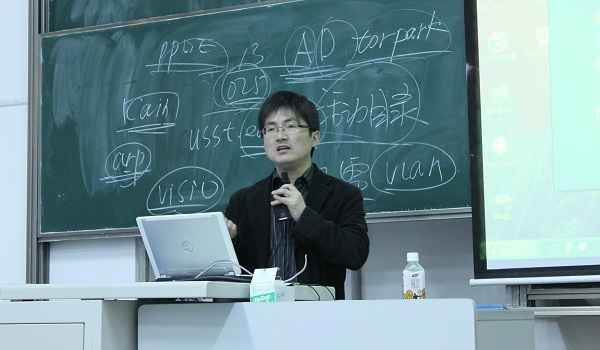 PPPOE 13 AD torpark
025
Kain
usst 活动目录
arp
visio vlan